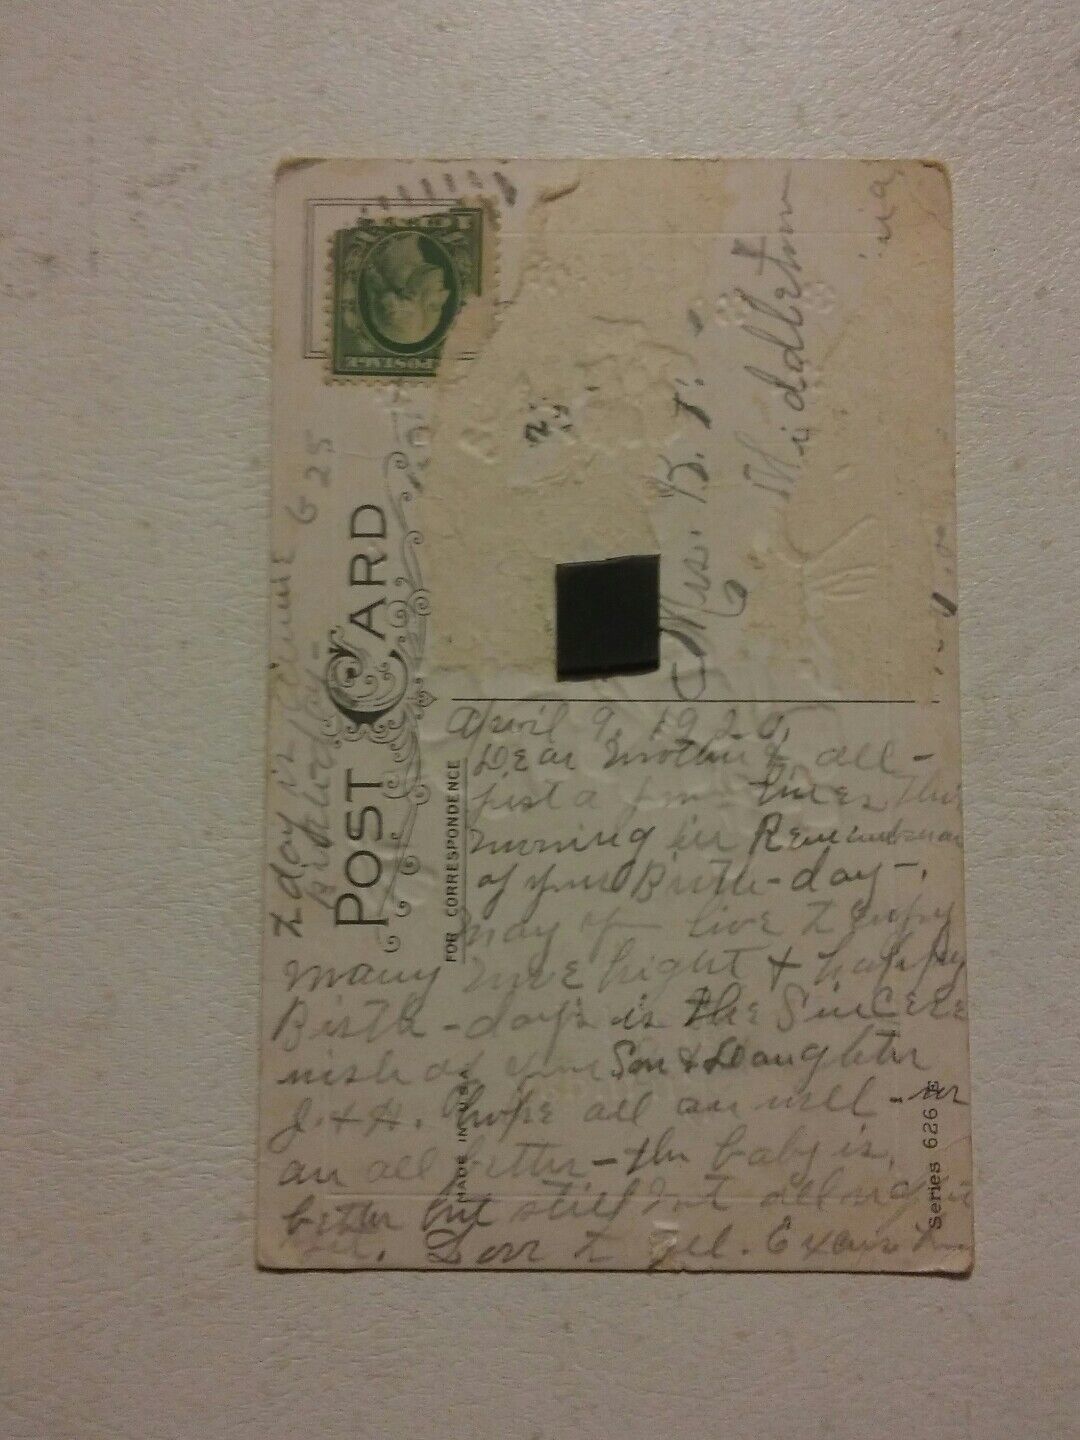 POST CARD
FOR CORRESPONDENCE
MADE IN U.S.A.
Series 626 E
POSTAGE
1 CENT 1
Mrs. B. T.
Middletown
April 9, 192
Dear Mother & all -
just a few lines this
morning in
of your Birth-day -.
May you live to enjoy
many more bright & happy
Birth-days is the Sincere
wish of your Son & Daughter
J. & H. hope all are well - we
are all better - the baby is
better but still not all right
yet. Love to all.
today is
Birthday -